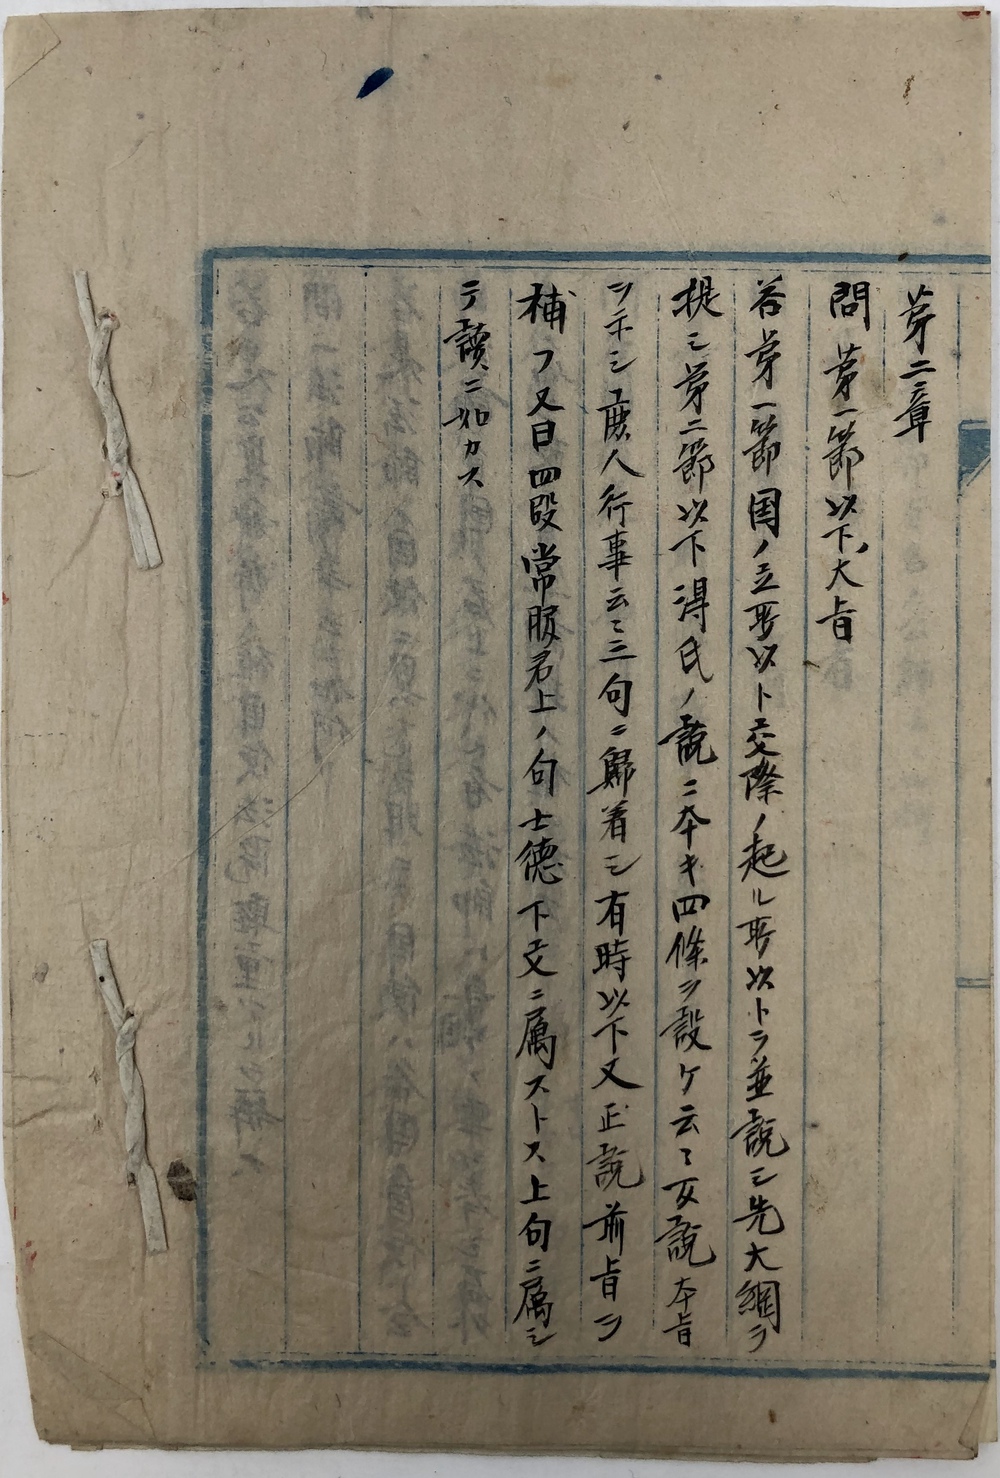 苐二章
問 苐一節以下ノ大旨
答 苐一節国ノ立所以ト交際ノ起ル所以トヲ並説シ先大綱ヲ
提シ苐二節以下得氏ノ說ニ本キ四條ヲ設ケ云〻反說本旨
ヲ示シ庶人行事云〻三句ニ歸着シ有時以下又正說前旨ヲ
補フ又曰四段常服君上ノ句士德下文ニ属ストス上句ニ属シ
テ讀ニ如カス